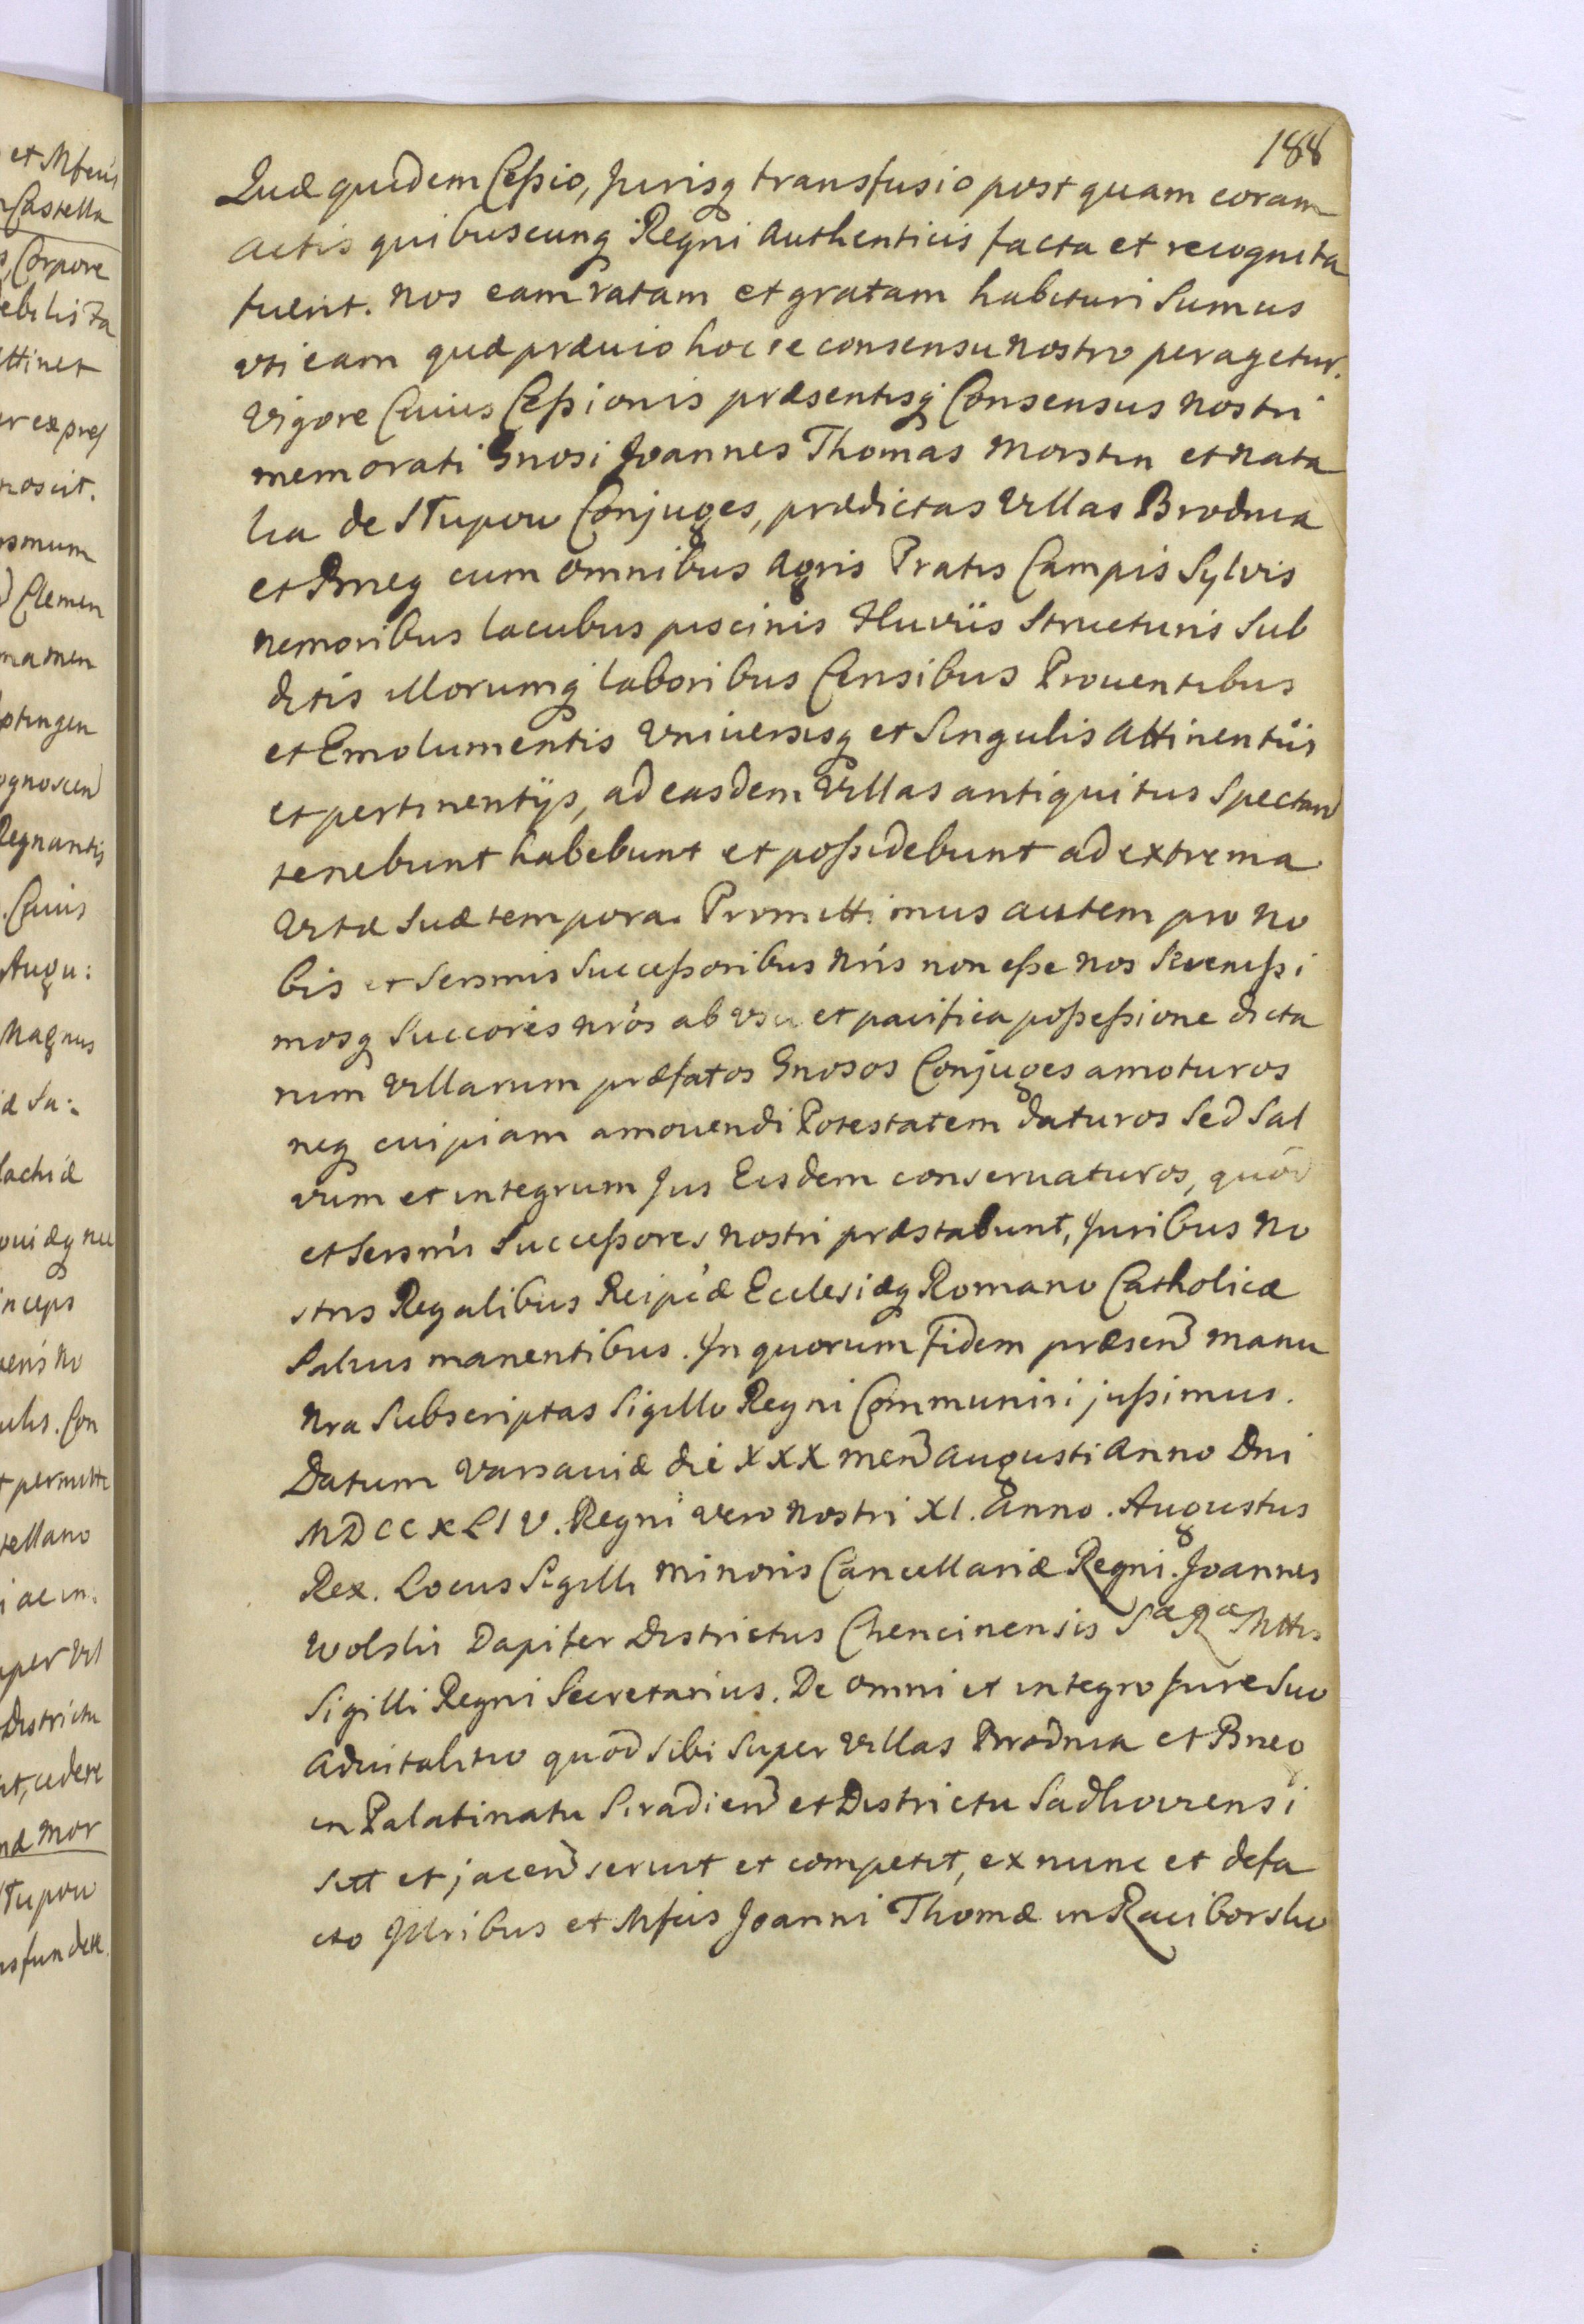 188
Quæ quidem Cessio, Jurisq transfusio post quam coram
actis quibuscunq Regni Authenticis facta et recognita
fuerit. Nos eam ratam et gratam habituri sumus
uti eam quæ prævio hocce consensu nostro peragetur.
Vigore Cuius Cessionis præsentisq Consensus nostri
memorati Gnosi Joannes Thomas Morstin et Nata
lia de Stupow Conjuges, prædictas Villas Brodnia
et Brzeg cum omnibus Agris Pratis Campis Sylvis
Nemoribus lacubus piscinis Fluviis Structuris Sub
ditis illorumq laboribus Censibus Proventibus
et Emolumentis Universisq et Singulis attinentiis
et pertinentijs, ad easdem Villas antiquitus Spectan
tenebunt habebunt et possidebunt ad extrema
Vitæ Suæ tempora. Promittimus autem pro no
bis et Sersmis Successoribus Nris non esse nos Serenissi
mosq Succores nros ab usu et pacifica possessione dicta
rum Villarum præfatos Gnosos Conjuges amoturos
neq cuipiam amovendi Potestatem daturos Sed Sal
vum et integrum Jus Eisdem conservaturos, quod
et Sersmi Successores nostri præstabunt, Juribus No
stris Regalibus Reipcæ Ecclesiæq Romano Catholicæ
Salvis manentibus. In quorum Fidem præsen manu
Nra Subscriptas Sigillo Regni Communiri jussimus.
Datum Varsaviæ die XXX men Augusti Anno Dni
MDCCXLIV. Regni vero Nostri XI. Anno. Augustus
Rex. Locus Sigilli minoris Cancellariæ Regni. Joannes
Wolski Dapifer Districtus Chencinensis Sæ Ræ Mttis
Sigilli Regni Secretarius. De omni et integro Jure Suo
advitalitio quod Sibi Super Villas Brodnia et Brzeg
in Palatinatu Siradien et Districtu Sadkoviensi
sitt et jacen servit et competit, ex nunc et defa
cto Illribus et Mfcis Joanni Thomæ in Raciborsko